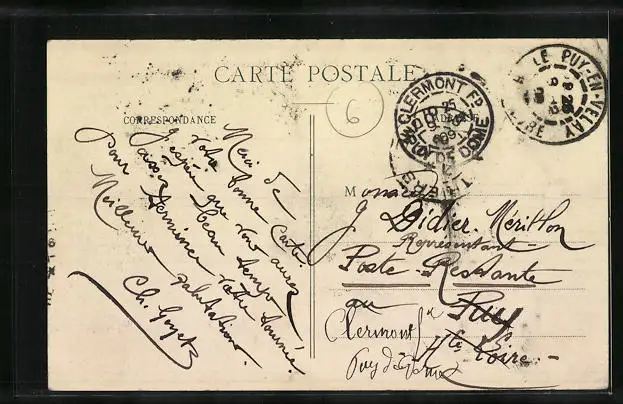 CARTE POSTALE
6
CORRESPONDANCE
Merci de
votre bonne carte.
J'espère que vous aurez
aussi beau temps
pour terminer votre tournée.
Meilleures salutations.
CLERMONT Fd
PUY DE DOME
LE PUY-EN-VELAY
Monsieur
J. Didier Mérillon
Représentant
Poste Restante
au Puy
Hte Loire
Clermont Fd
Puy de Dôme